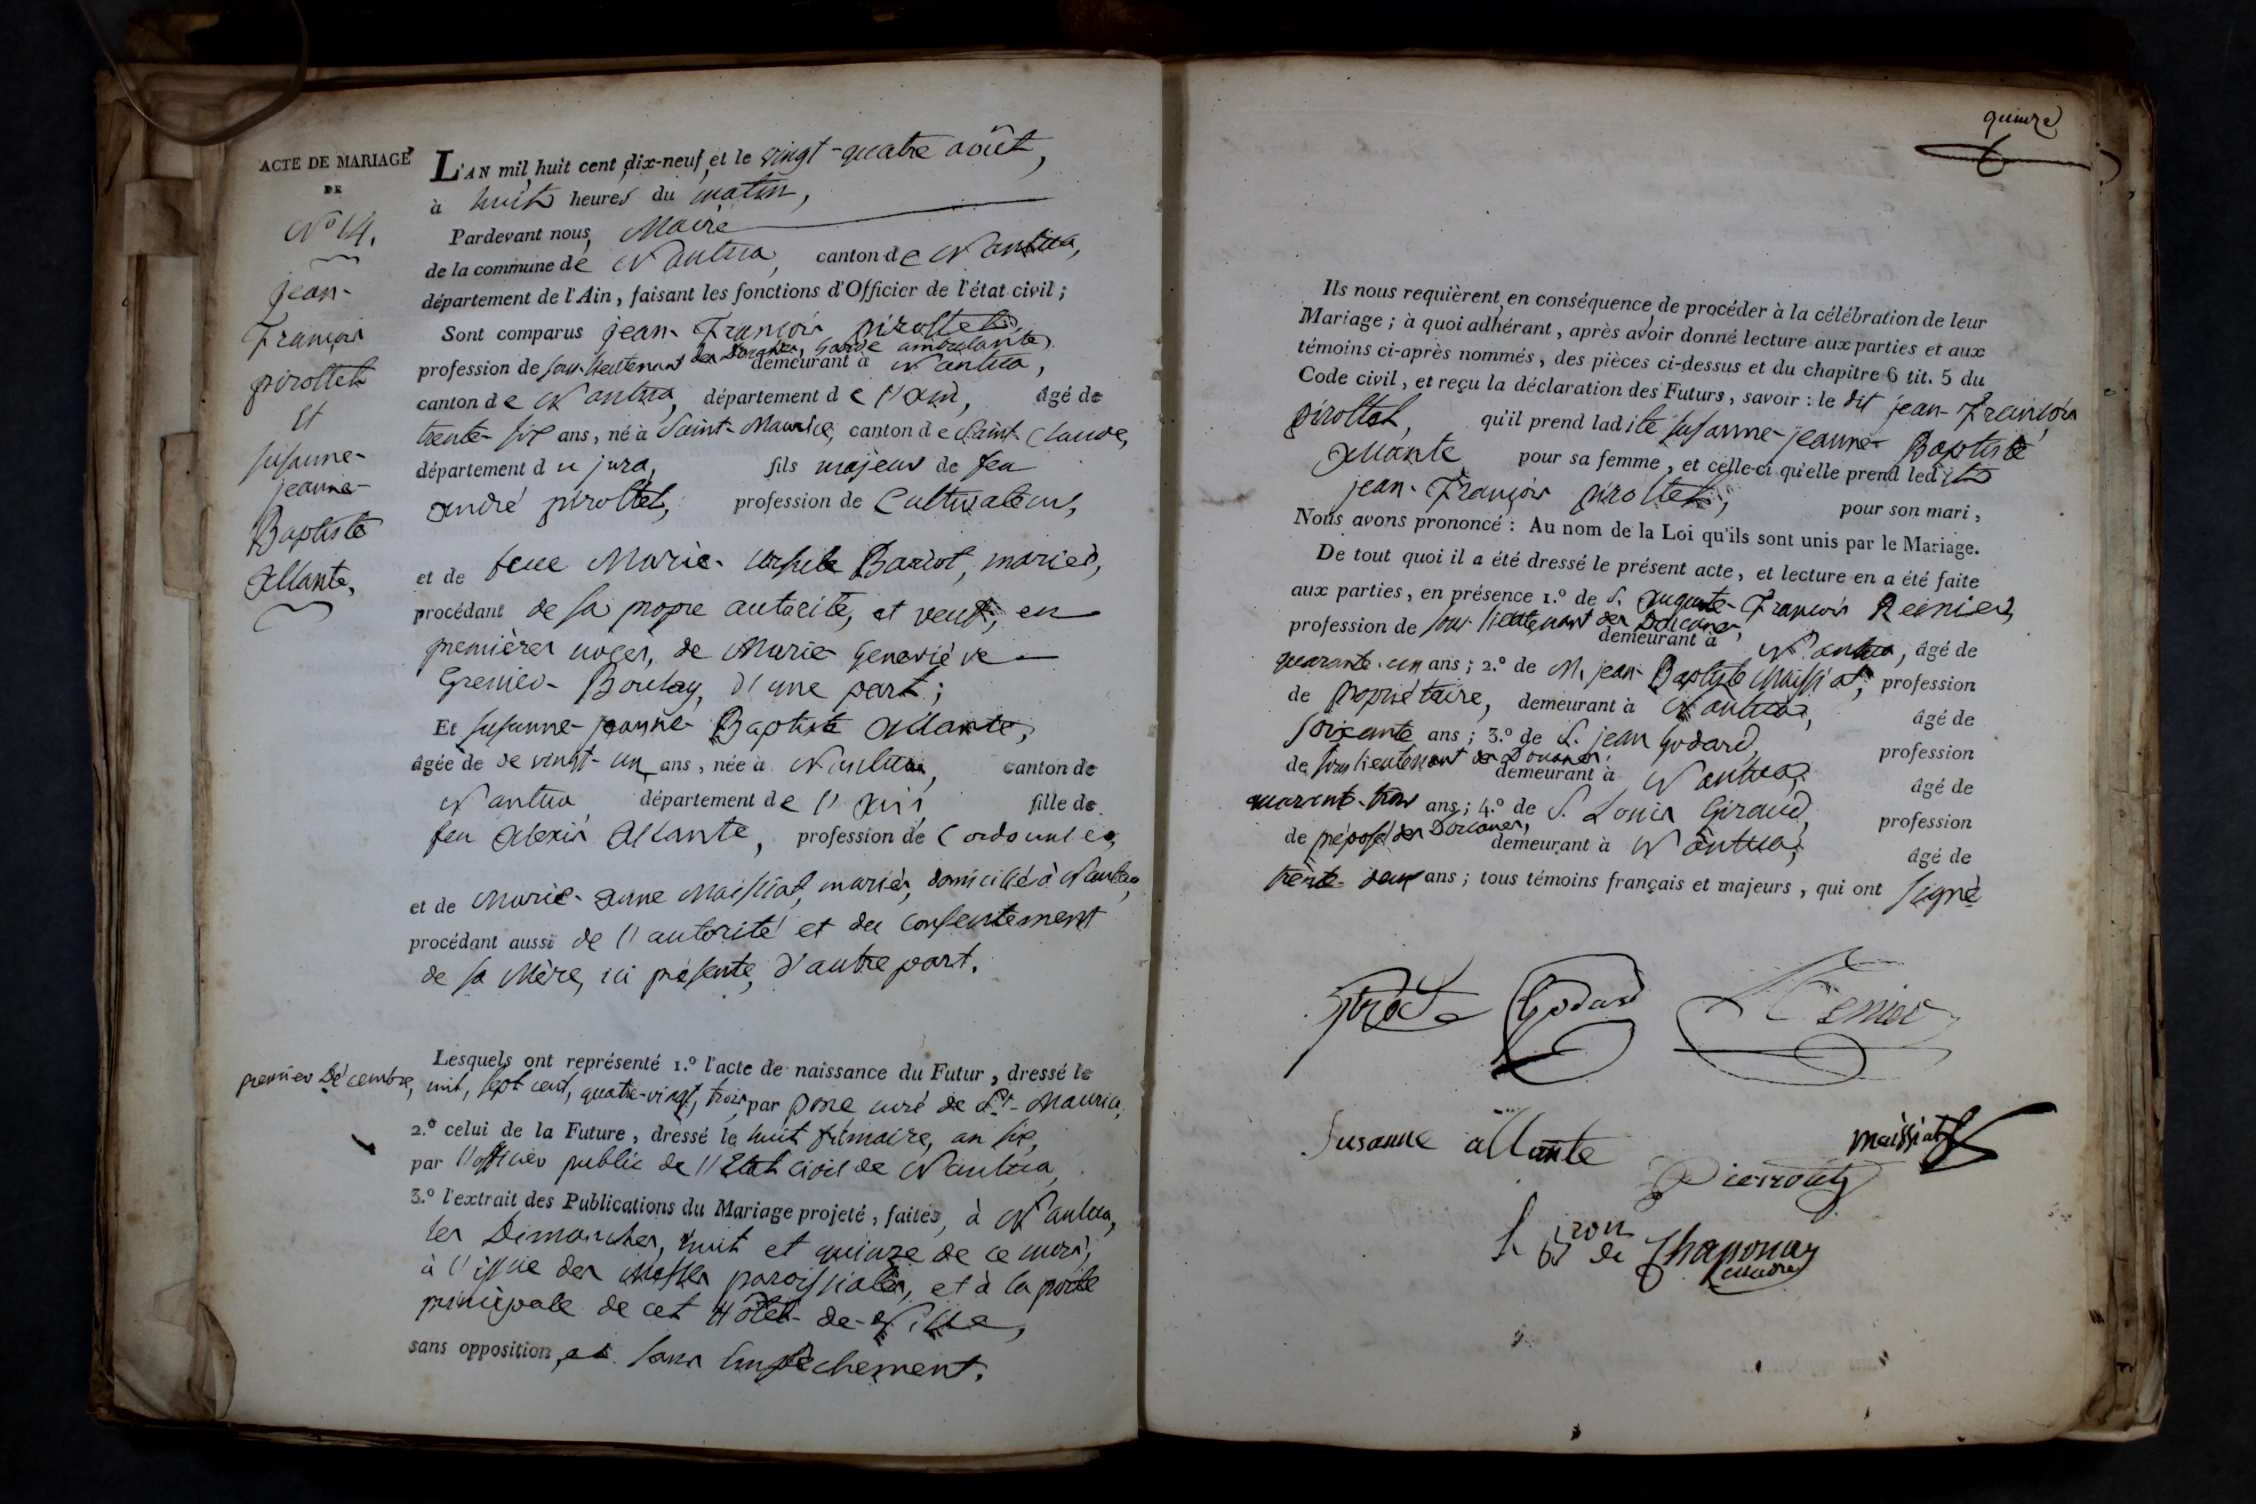 ACTE DE MARIAGE
DE
N° 14.
jean-
François
pirottet
Et
susanne-
jeanne-
Baptiste
Allante,
L'AN mil huit cent dix-neuf et le vingt-quatre août,
à huit heures du matin,
Pardevant nous, Maire
de la commune de Nantua, canton de Nantua,
département de l'Ain, faisant les fonctions d'Officier de l'état civil ;
Sont comparus jean-François pirottet,
profession de sous-lieutenant des Douanes, Garde ambulante, demeurant à Nantua,
canton de Nantua, département de l'ain, âgé de
trente-six ans, né à Saint-Maurice, canton de Saint-Claude,
département du jura, fils majeur de feu
andré pirottet, profession de Cultivateur,
et de feue Marie-ursule Barrot, mariés,
procédant de sa propre autorité, et veuf, en
premières noces, de Marie Geneviève
Grenier-Boulay, d'une part ;
Et susanne-jeanne-Baptiste Allante,
âgée de de vingt-un ans, née à Nantua, canton de
Nantua département de l'Ain, fille de
feu Alexis Allante, profession de Cordonnier,
et de Marie-anne Maissiat, mariés, domicilié à Nantua,
procédant aussi de l'autorité et du consentement
de sa Mère, ici présente, d'autre part.
Lesquels ont représenté 1.° l'acte de naissance du Futur, dressé le
premier Décembre, mil, sept cent, quatre-vingt, trois, par curé de St-Maurice,
2.° celui de la Future, dressé le huit frimaire, an six,
par l'officier public de l'Etat civil de Nantua,
3.° l'extrait des Publications du Mariage projeté, faites, à Nantua,
les Dimanches, huit et quinze de ce mois,
à l'issue des messes paroissiales, et à la porte
principale de cet Hôtel-de-Ville,
sans opposition et sans Empêchement.
quinze
Ils nous requièrent en conséquence de procéder à la célébration de leur
Mariage ; à quoi adhérant, après avoir donné lecture aux parties et aux
témoins ci-après nommés, des pièces ci-dessus et du chapitre 6 tit. 5 du
Code civil, et reçu la déclaration des Futurs, savoir : le dit jean-François
pirottet, qu'il prend ladite susanne-jeanne-Baptiste
Allante pour sa femme, et celle-ci qu'elle prend ledit
jean-François pirottet, pour son mari,
Nous avons prononcé : Au nom de la Loi qu'ils sont unis par le Mariage.
De tout quoi il a été dressé le présent acte, et lecture en a été faite
aux parties, en présence 1.° de S. auguste-François Reinier,
profession de sous lieutenant des Douanes, demeurant à Nantua, âgé de
quarante-un ans ; 2.° de M. jean-Baptiste Maissiat, profession
de propriétaire, demeurant à Nantua, âgé de
soixante ans ; 3.° de S. jean Godard, profession
de sous lieutenant des Douanes, demeurant à Nantua, âgé de
quarante-trois ans ; 4.° de S. Louis Giraud, profession
de préposé des Douanes, demeurant à Nantua, âgé de
trente-deux ans ; tous témoins français et majeurs, qui ont signé
Godard
Susanne allante
maissiat
Pierroutz
de Thaponay
maire